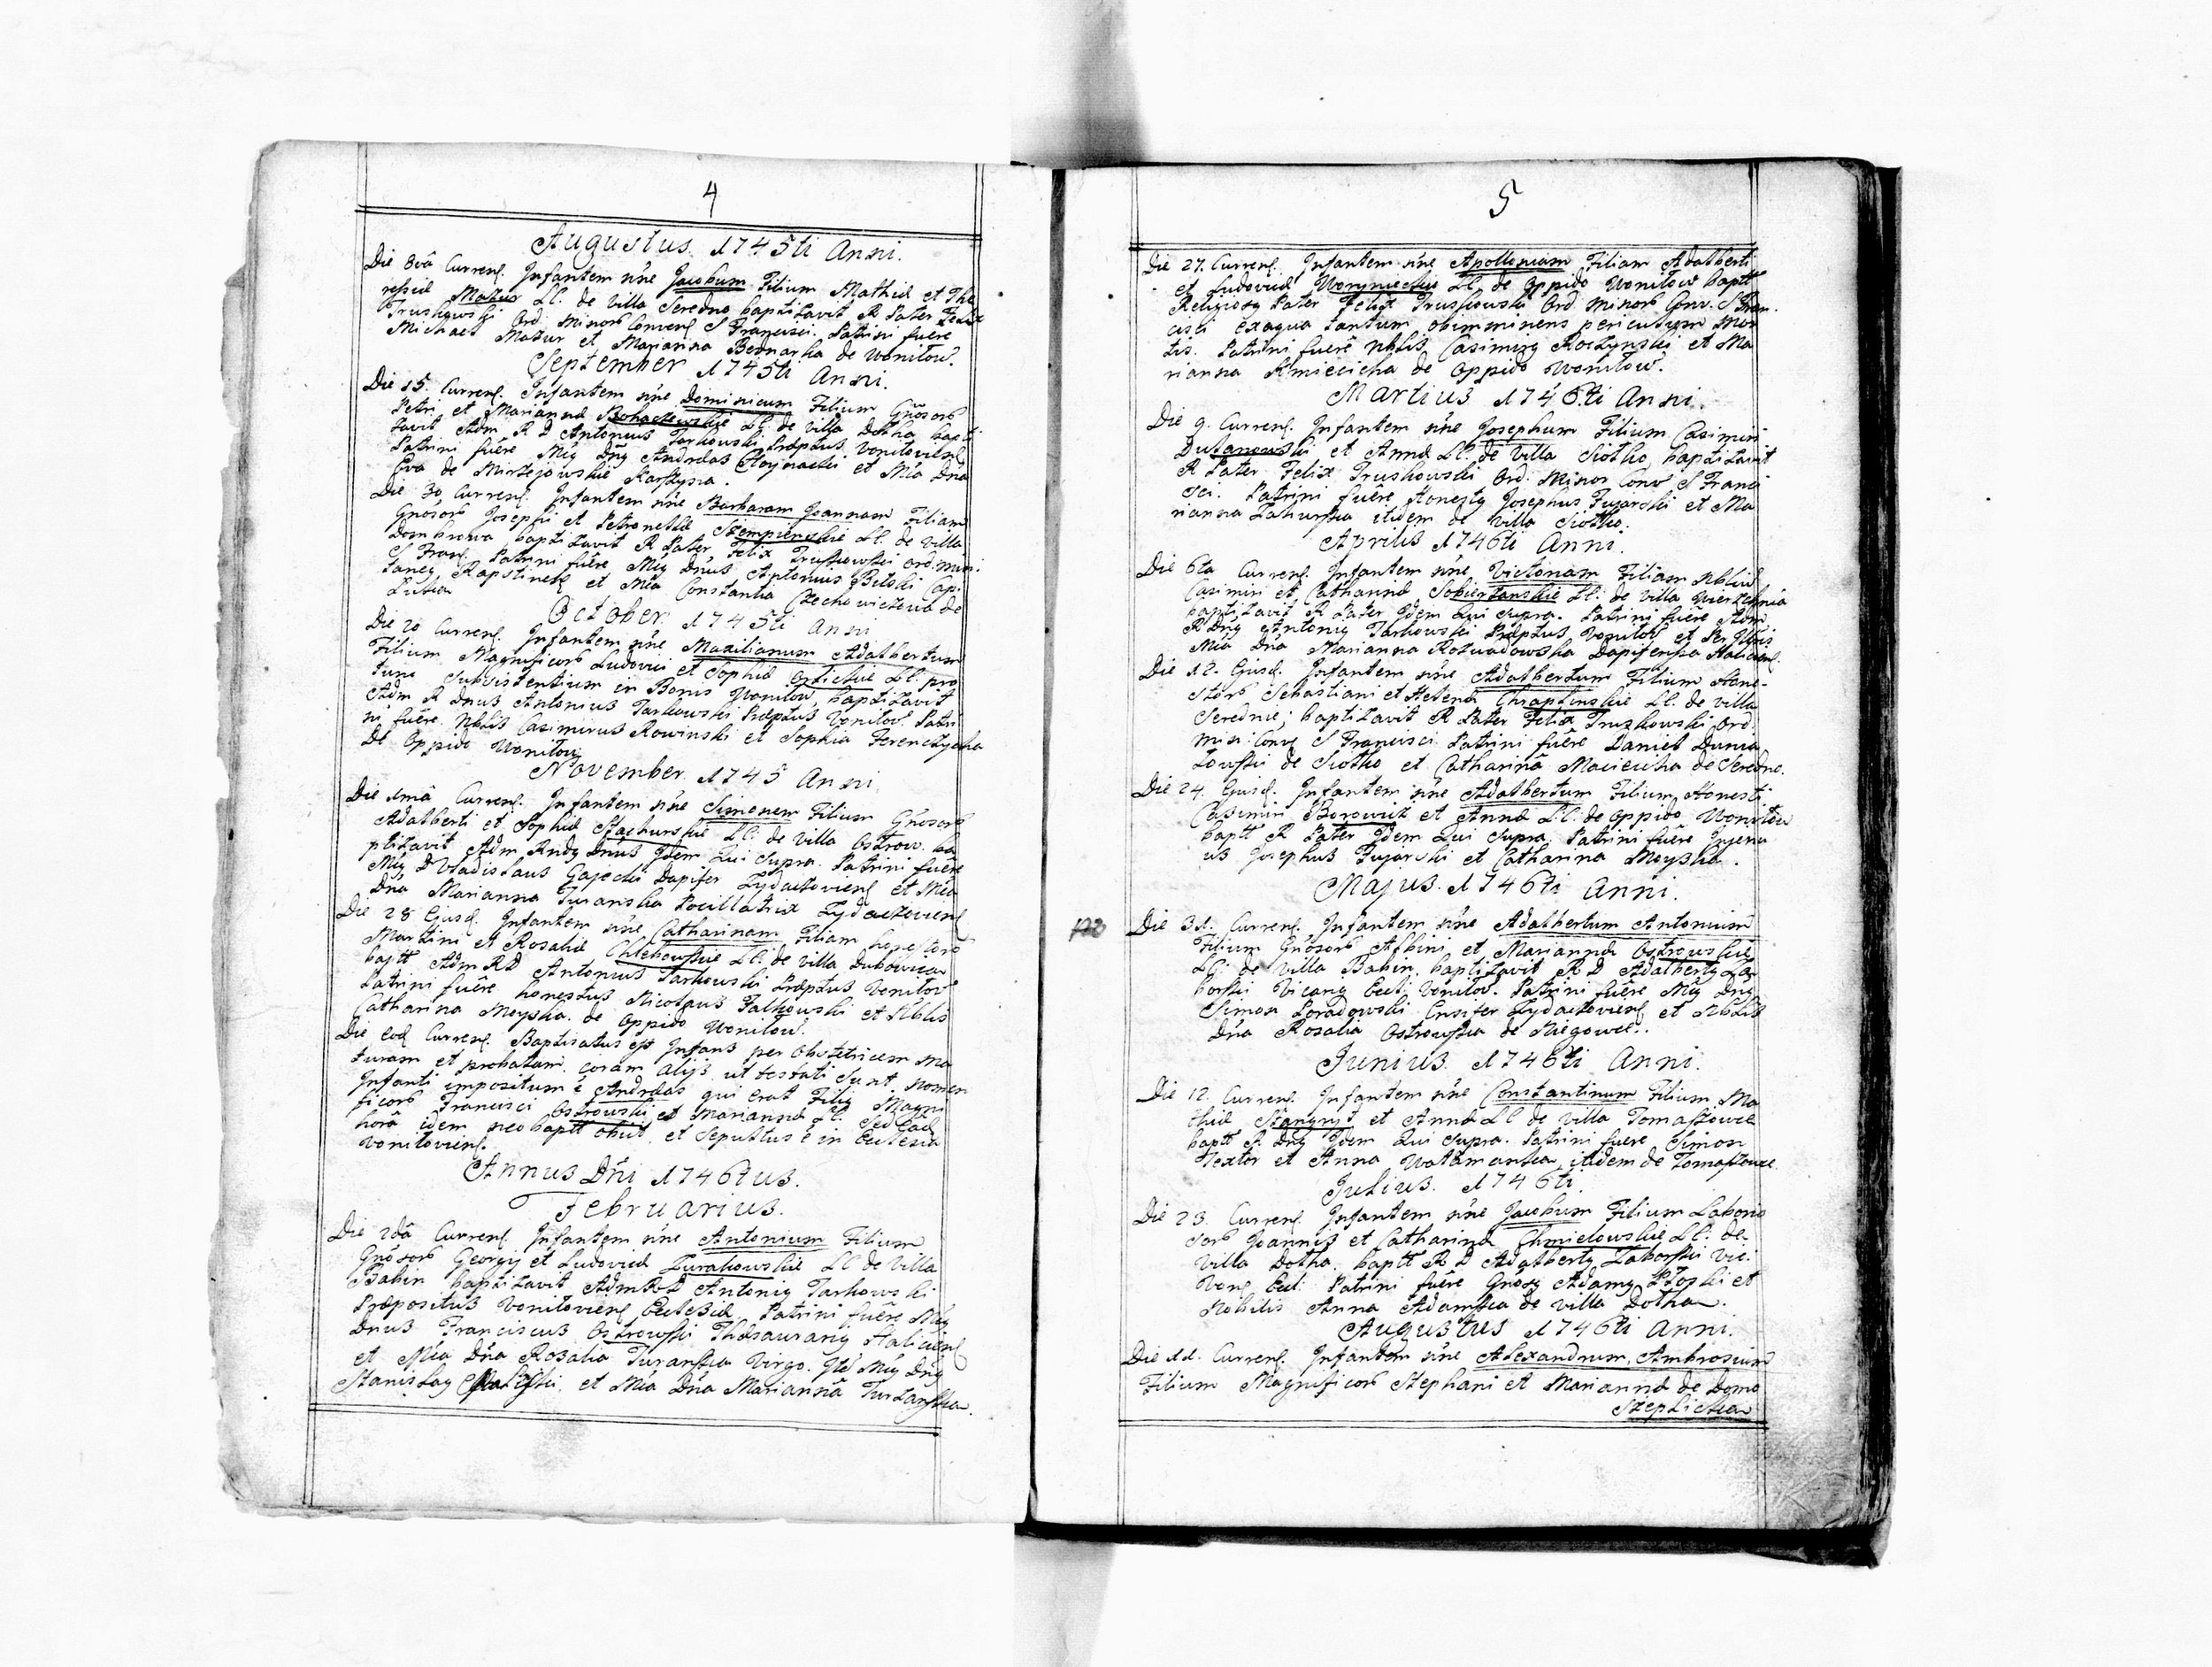 4
Augustus. 1745ti Anni.
Die 8vâ Curren. Infantem nîne Jacobum Filium Mathiæ et The
resiæ Mazur LC. de villa Seredna baptizavit R Pater Felix
Truskowski Ord: Minor Conven S Francisci. Patrini fuêre
Michael Mazur et Marianna Bednarka de Wonilow.
September 1745ti Anni.
Die 15. Curren. Infantem nîne Dominicum Filium Gnosor
Petri et Mariannæ LC. de villa Dołha bapti
zavit Adm R D Antonius Tarkowski Præptus Vonilovien
Patrini fuêre Mig Dng Andreas et Mia Dna
Eva de
Die 30 Curren. Infantem nîne Barbaram Joannam Filiam
Gnosor Josephi et Petronellæ LC. de villa
Dombrowa baptizavit R Pater Felix Truskowski Ord: Min:
S Fran. Patrini fuêre Mig Dnus Antonius Bilski Capi
taneg et Mia Constantia Czechowiczowa de
October 1745ti Anni
Die 20 Curren. Infantem nîne Maxilianum Adalbertum
Filium Magnificor Ludovici et Sophiæ LC. pro
tunc Subsistentium in Bonis Wonilow, baptizavit
Adm R Dnus Antonius Tarkowski Præptus Vonilov. Patri
ni fuêre Nblis Casimirus Rowinski et Sophia
De Oppido Wonilow
November 1745 Anni
Die 1mâ Curren. Infantem nîne Simonem Filium Gnosor
Adalberti et Sophiæ Stachurskie LC. de villa Ostrow. ba
ptizavit Adm Rndg Dnus Idem Qui Supra. Patrini fuêre
Mig D Vladislaus Gajecki Dapifer Zydaczovien et Mia
Dna Marianna Turanska Pocillatrix Zydaczovien
Die 28 Ejusd. Infantem nîne Catharinam Filiam honestor
Martini et Rosaliæ LC. de villa Dubowica
baptt Adm RD Antonius Tarkowski Præptus Vonilov
Patrini fuêre honestus Nicolaus Falkowski et Nblis
Catharina Moyska. de Oppido Wonilow.
Die eod Curren. Baptisatus est Infans per Obstetricem ma
turam et probatam, coram alijs ut testati sunt. nomen
Infanti impositum é Andreas qui erat Filig Magni
ficor Francisci Ostrowski et Mariannæ LC. Sed Ead
horâ idem neobaptt obiit et Sepultus é in Ecclesia
Vonilovien.
Annus Dni 1746tus.
Februarius.
Die 2dâ Curren. Infantem nîne Antonium Filium
Gnosor Georgij et Ludovicæ Zurakowskie LC de villa
Babin baptizavit AdmRD Antonig Tarkowski
Præpositus Vonilovien Ecclesiæ. Patrini fuêre Mig
Dnus Franciscus Ostrowski Thesaurarig Halicien
et Mia Dna Rosalia Turanska Virgo. Ite Mig Dng
Stanislag et Mia Dna Marianna Turzanska.
5
Die 27. Curren. Infantem nîne Apolloniam Filiam Adalberti
et Ludovicæ LC. de Oppido Wonilow baptt
Religiosg Pater Felix Truskowski Ord: Minor Conv. S Fran.
cisci exaqua tantum obimminens periculum mor
tis. Patrini fuêre Nblis Casimirg et Ma
rianna Kmiecicha de Oppido Wonilow.
Martius 1746.ti Anni.
Die 9. Curren. Infantem nîne Josephum Filium Casimiri
Dulanowski et Annæ LC. de villa Siołko baptizavit
R Pater Felix Truskowski Ord: Minor Conv S Franci
sci. Patrini fuêre Honestg Josephus Fujarski et Ma
rianna Zahurska itidem de villa Siołko.
Aprilis 1746ti Anni.
Die 6ta Curren. Infantem nîne Victoriam Filiam Nbliu
Casimiri et Catharinæ LC. de villa Wierzchnia
baptizavit R Pater Idem Qui Supra. Patrini fuêre Adm
R Dng Antonig Tarkowski Præptus Vonilov et Per Illris
Mia Dna Marianna Rozwadowska Dapifersa Halicien.
Die 12. Ejusd. Infantem nîne Adalbertum Filium Hone-
stor Sebastiani et Helenæ Chraplinskie LC. de villa
Serednie; baptizavit R Pater Felix Truskowski Ord:
Min: Conv S Francisci Patrini fuêre Daniel Dunia
zowski de Siołko et Catharina Maciecicha de Seredne.
Die 24. Ejusd. Infantem nîne Adalbertum Filium Honesti
Casimiri Borowicz et Annæ LC. de Oppido Wonilow
baptt R Pater Idem Qui Supra. Patrini fuêre Ingenu
us Josephus Fujarski et Catharina Moyska.
Majus. 1746ti Anni.
Die 31. Curren. Infantem nîne Adalbertum Antonium
Filium Gnosor Albini et Mariannæ Ostrowskie
LC: de villa Babin. baptizavit R D Adalbertg Za
borski Vicarig Eccl: Vonilov. Patrini fuêre Mig Dng
Simon Poradowski Ensifer Zydaczovien et Nblis
Dna Rosalia Ostrowska de Niegowce.
Junius 1746ti Anni.
Die 12. Curren. Infantem nîne Constantinum Filium Ma
thiæ Stangryt et Annæ LC de villa Tomaszowce
baptt R Dng Idem Qui Supra. Patrini fuere Simon
Textor et Anna Watamanka itidem de Tomaszowce.
Julius. 1746ti
Die 23. Curren. Infantem nîne Jacobum Filium Laborio
sor Joannis et Catharinæ Chmielowskie LC. de
Villa Dołha. baptt R D Adalbertg Zaborski Vic:
Vonil Eccl. Patrini fuêre Gnosg Adamg et
Nobilis Anna Adamska de villa Dołha.
Augustus 1746ti Anni.
Die 11. Curren. Infantem nîne Alexandrum, Ambrosium
Filium Magnificor Stephani et Mariannæ de Domo